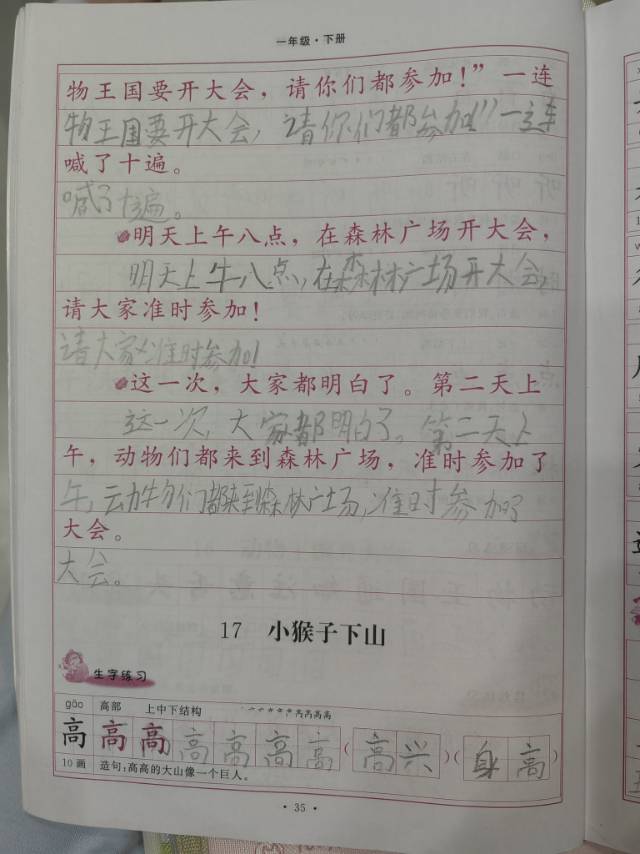 一年级·下册
物王国要开大会，请你们都参加！”一连
物王国要开大会，请你们都参加！”一连
喊了十遍。
喊了十遍。
明天上午八点，在森林广场开大会，
明天上午八点，在森林广场开大会，
请大家准时参加！
请大家准时参加！
这一次，大家都明白了。第二天上
这一次，大家都明白了。第二天上
午，动物们都来到森林广场，准时参加了
午，动物们都来到森林广场，准时参加了
大会。
大会。
17 小猴子下山
生字练习
gāo 高部 上中下结构
高 高 高 高 高 高 高（高兴）（身高）
10画 造句：高高的大山像一个巨人。
·35·